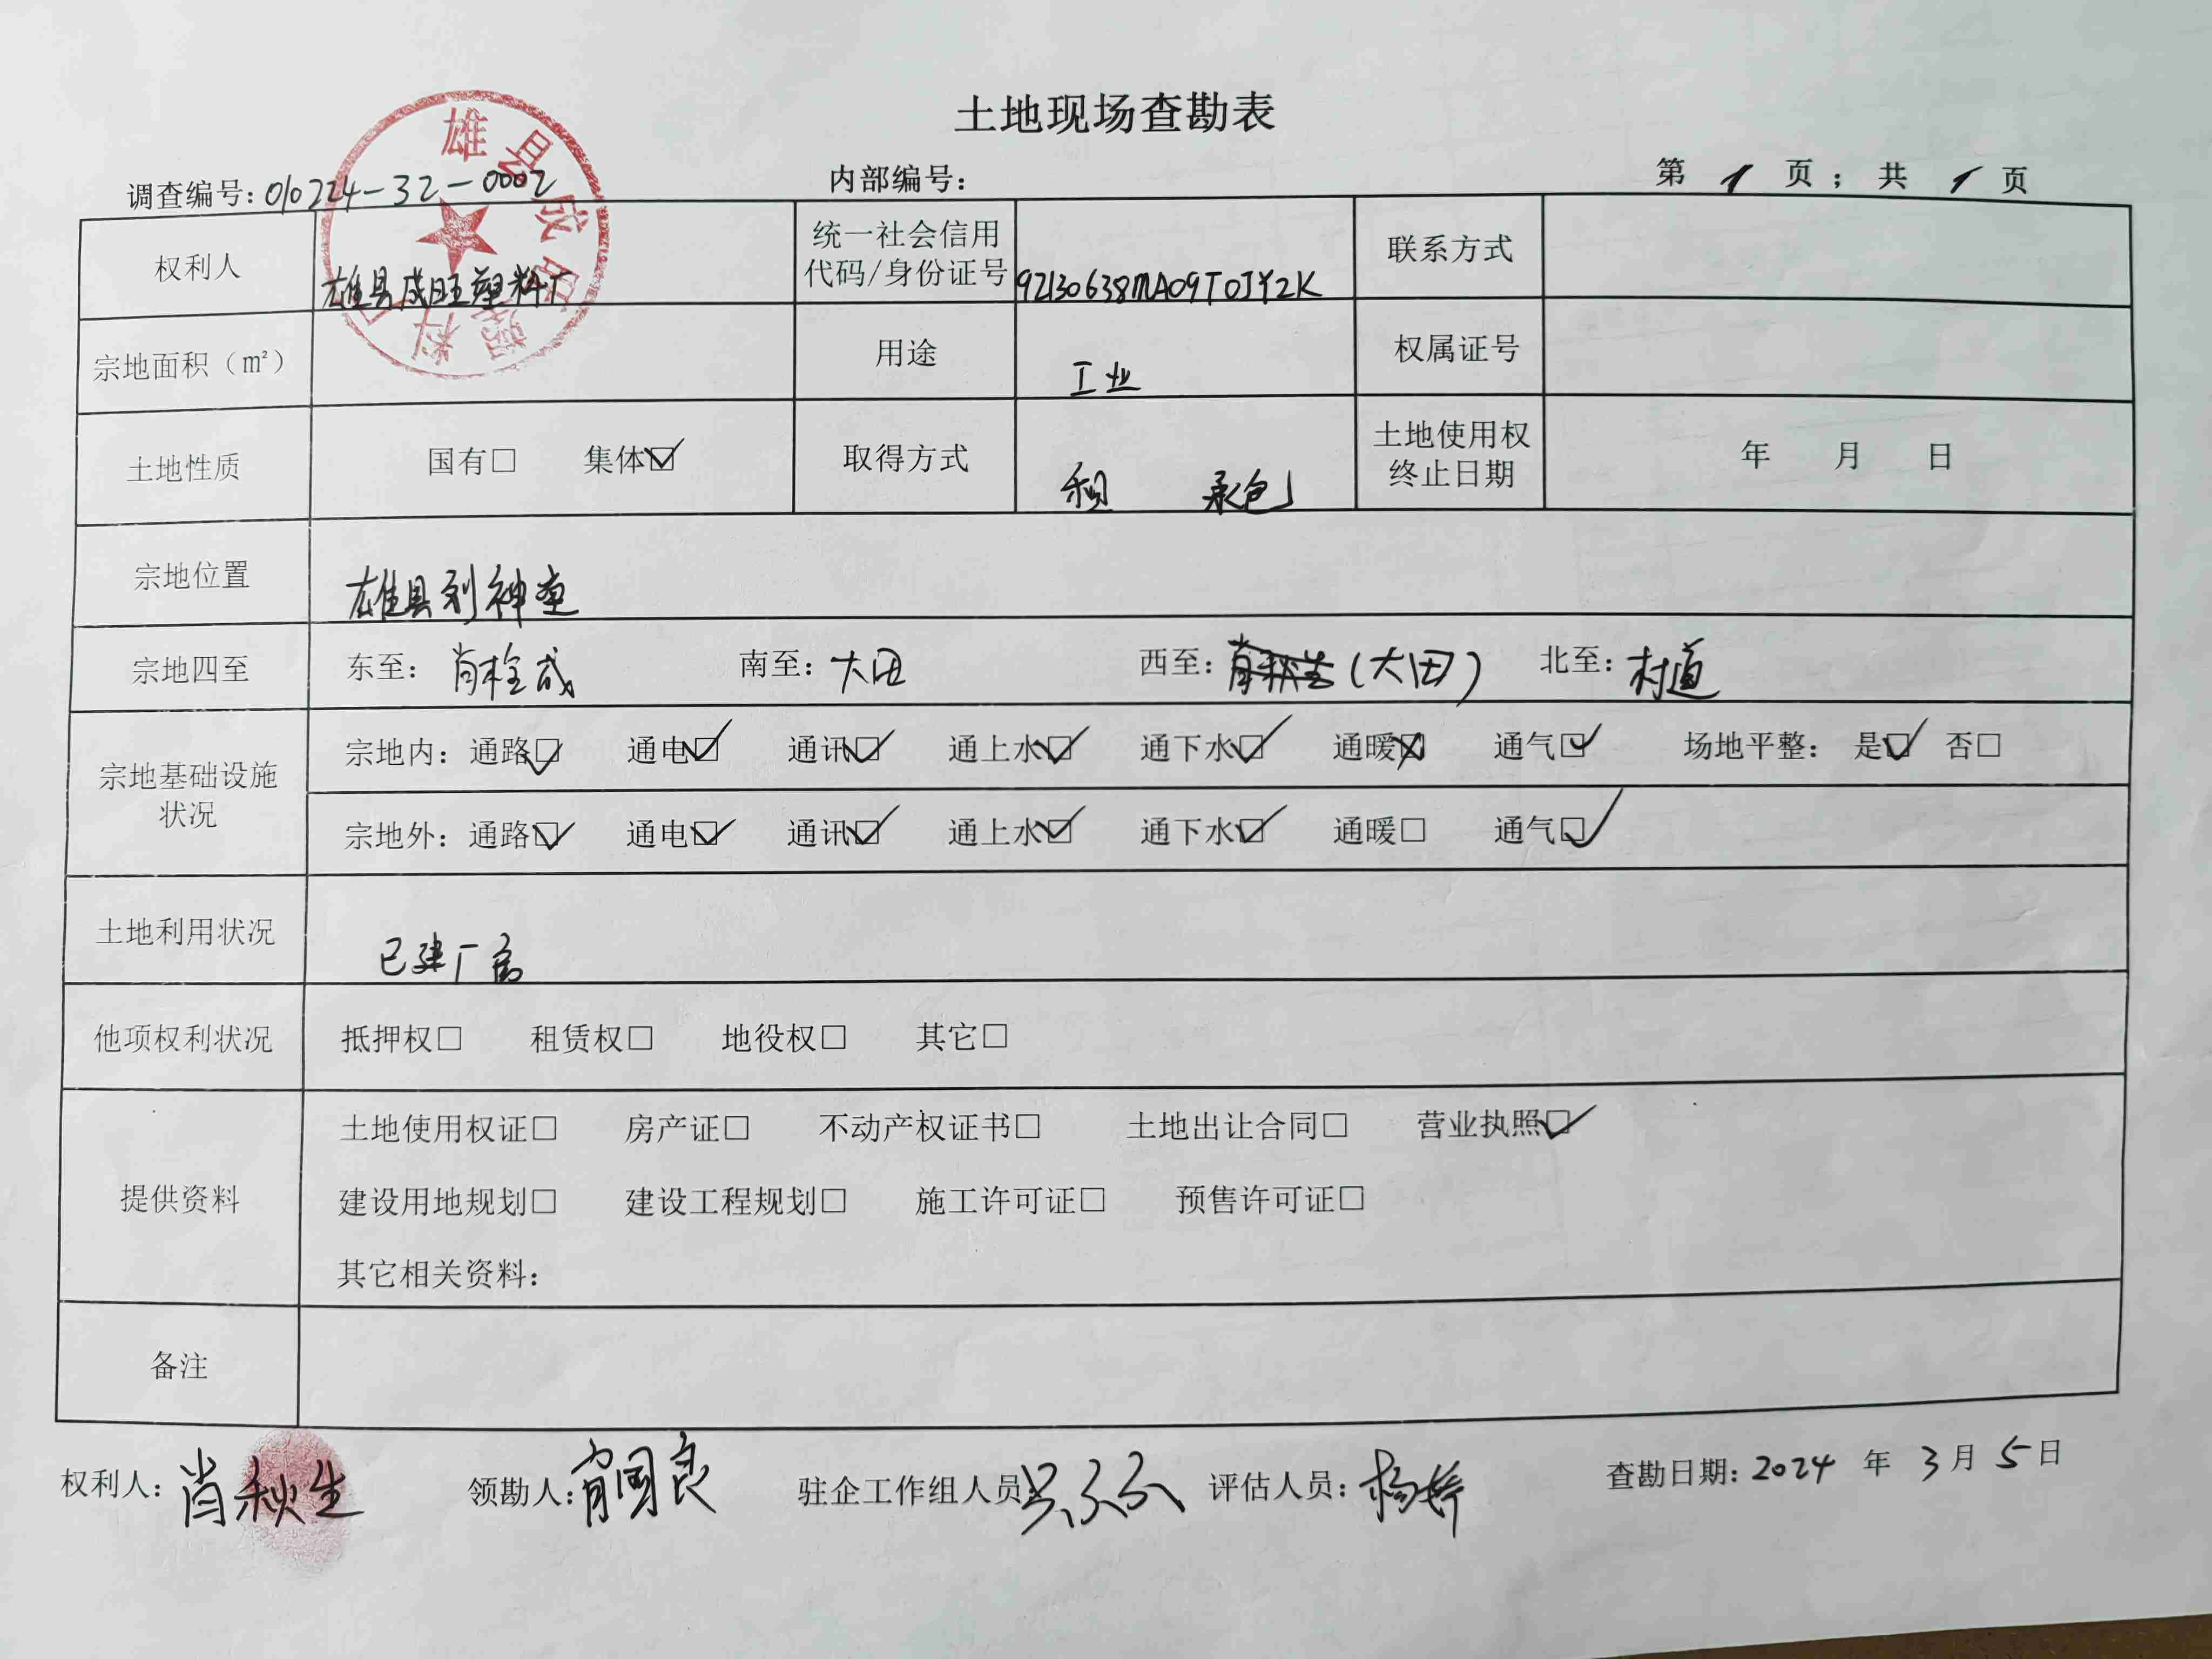 土地现场查勘表
调查编号：010224-32-0002 内部编号： 第 1 页；共 1 页
权利人 雄县成旺塑料厂 统一社会信用代码/身份证号 92130638MA09T0JY2K 联系方式
宗地面积（㎡） 用途 工业 权属证号
土地性质 国有□ 集体☑ 取得方式 租 承包 土地使用权终止日期 年 月 日
宗地位置 雄县刘神堂
宗地四至 东至：肖栓成 南至：大田 西至：（大田） 北至：村道
宗地基础设施状况
宗地内：通路☑ 通电☑ 通讯☑ 通上水☑ 通下水☑ 通暖☒ 通气☑ 场地平整：是☑ 否□
宗地外：通路☑ 通电☑ 通讯☑ 通上水☑ 通下水☑ 通暖□ 通气☑
土地利用状况 已建厂房
他项权利状况 抵押权□ 租赁权□ 地役权□ 其它□
提供资料
土地使用权证□ 房产证□ 不动产权证书□ 土地出让合同□ 营业执照☑
建设用地规划□ 建设工程规划□ 施工许可证□ 预售许可证□
其它相关资料：
备注
权利人：肖秋生 领勘人：肖国良 驻企工作组人员 评估人员：杨婷 查勘日期：2024 年 3 月 5 日
雄县成旺塑料厂